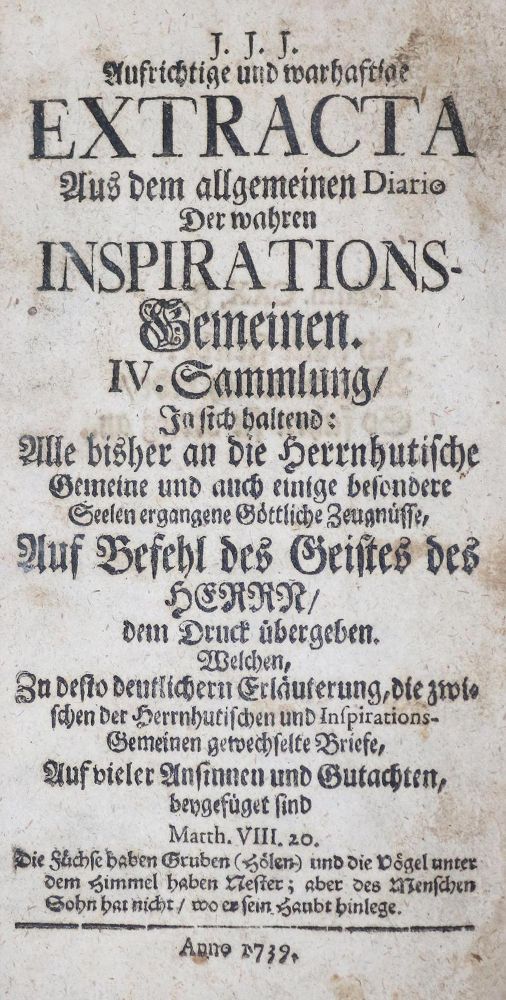 J. J. J.
Aufrichtige und warhaftige
EXTRACTA
Aus dem allgemeinen Diario
Der wahren
INSPIRATIONS-
Gemeinen.
IV. Sammlung/
In sich haltend:
Alle bisher an die Herrnhutische
Gemeine und auch einige besondere
Seelen ergangene Göttliche Zeugnüsse,
Auf Befehl des Geistes des
HERRN/
dem Druck übergeben.
Welchen,
Zu desto deutlichern Erläuterung, die zwi-
schen der Herrnhutischen und Inspirations-
Gemeinen gewechselte Briefe,
Auf vieler Ansinnen und Gutachten,
beygefüget sind
Matth. VIII. 20.
Die Füchse haben Gruben (Hölen) und die Vögel unter
dem Himmel haben Nester; aber des Menschen
Sohn hat nicht/ wo er sein Haubt hinlege.
Anno 1739.